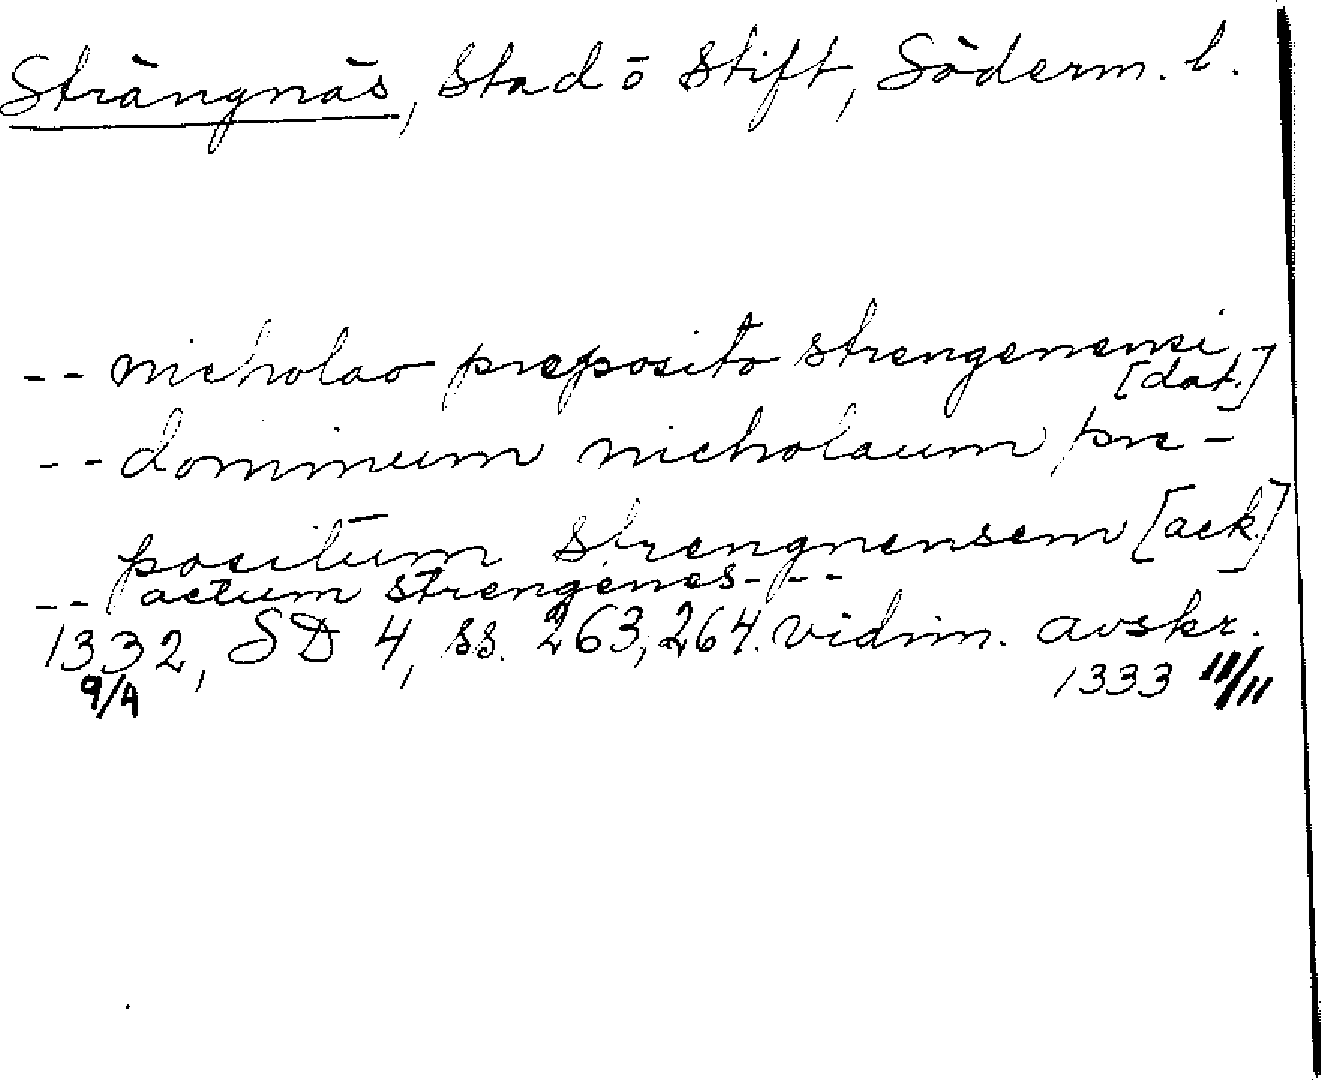 Strängnäs, Stad o Stift, Söderm. l.
-- nicholao preposito strengenensi --
[dat.]
-- dominum nicholaum pre-
positum strengnensem [ack.]
-- actum strengenes ---
1332, SD 4, ss. 263, 264. vidim. avskr.
9/4 1333 11/11